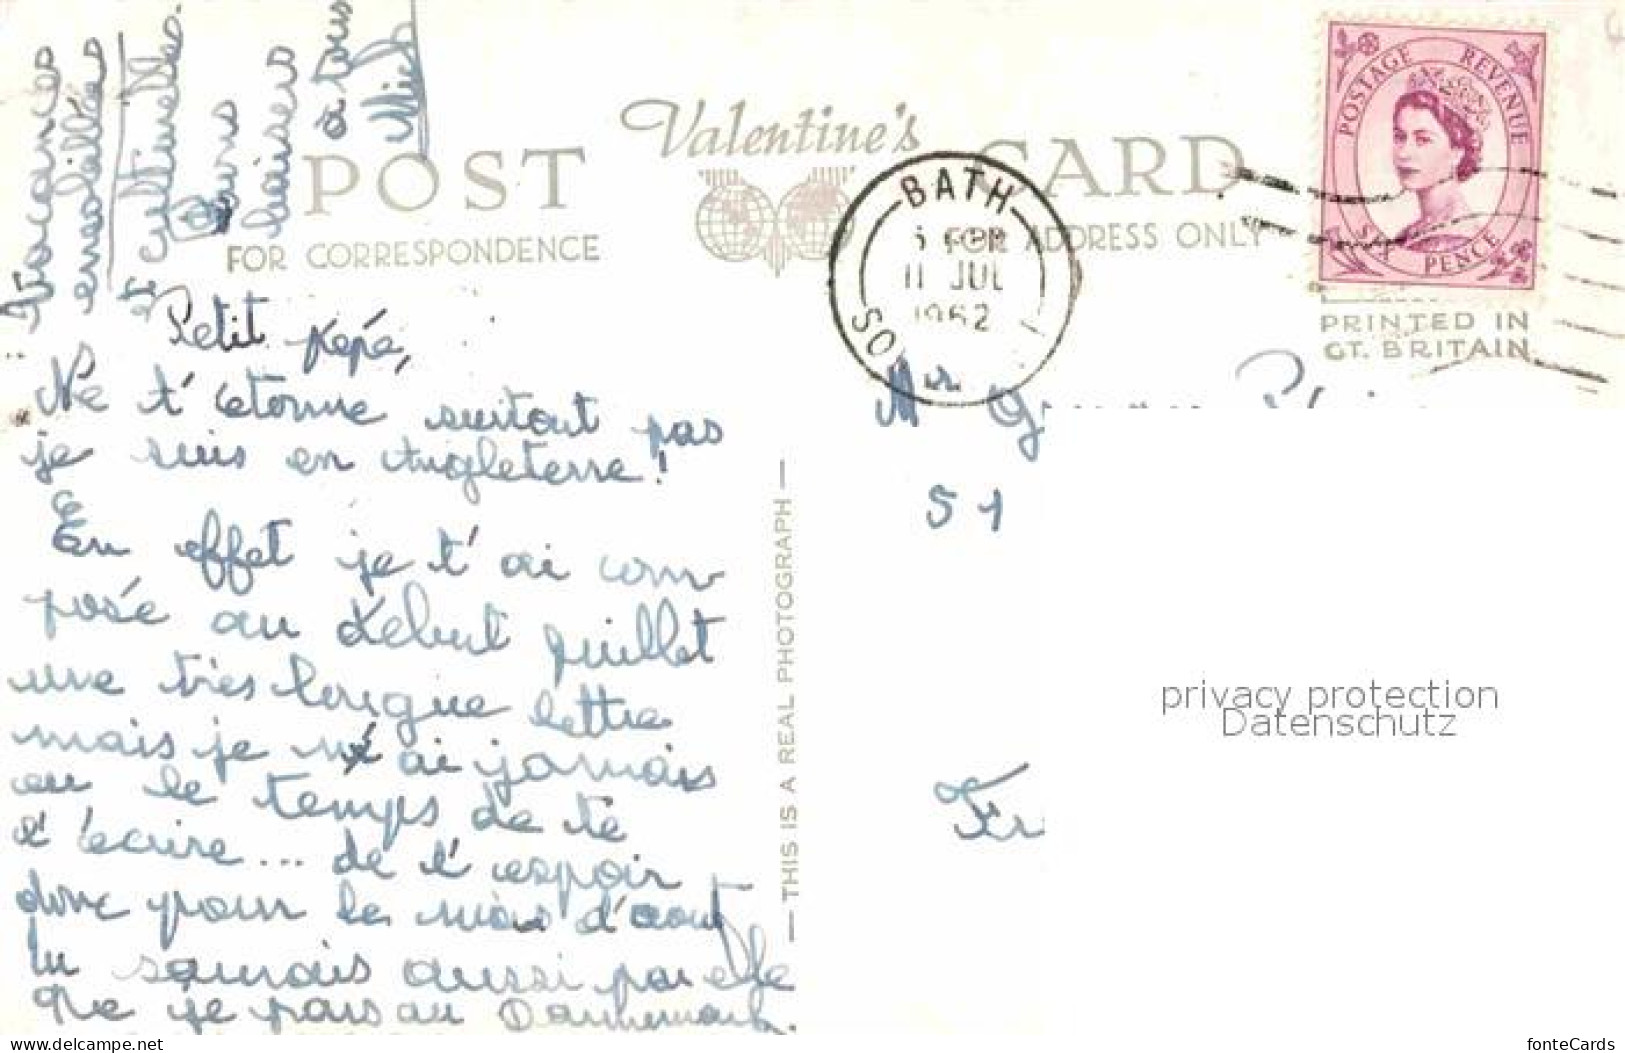 Vacances
ensoleillées
et culturelles.
Bons
baisers
à tous
Mich
Valentine's
POST CARD
FOR CORRESPONDENCE
ADDRESS ONLY
BATH
11 JUL
1962
SO
POSTAGE REVENUE
SIX PENCE
PRINTED IN
GT. BRITAIN
Petit pépé,
Ne t'étonne surtout pas
je suis en Angleterre!
En effet je t'ai com-
posé au début juillet
une très longue lettre
mais je n'ai jamais
eu le temps de te
l'écrire... de l'espoir
donc pour le mois d'aout
tu saurais aussi par elle
que je pars au Dannemark.
THIS IS A REAL PHOTOGRAPH
Mr
51
Fr
privacy protection
Datenschutz
https://www.delcampe.net
fonteCards